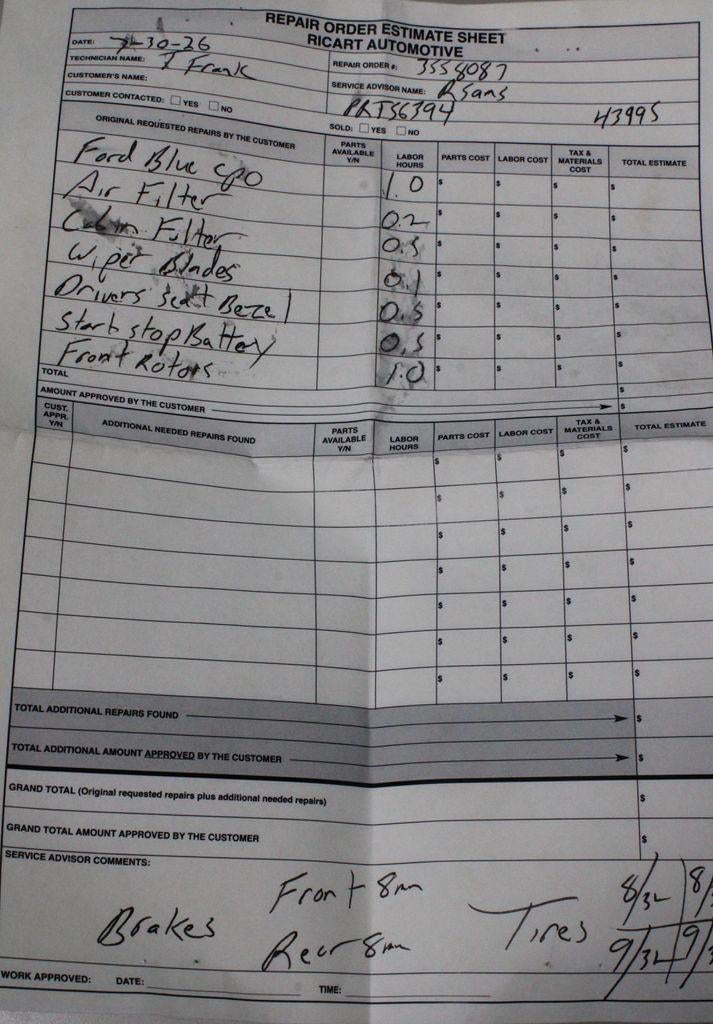 REPAIR ORDER ESTIMATE SHEET
RICART AUTOMOTIVE
DATE: 7-30-26
TECHNICIAN NAME: I Frank
REPAIR ORDER #: 3558087
CUSTOMER'S NAME:
SERVICE ADVISOR NAME: RSams
CUSTOMER CONTACTED: YES NO
PRTS6394 43995
SOLD: YES NO
ORIGINAL REQUESTED REPAIRS BY THE CUSTOMER PARTS AVAILABLE Y/N LABOR HOURS PARTS COST LABOR COST TAX & MATERIALS COST TOTAL ESTIMATE
Ford Blue CPO 1.0 $ $ $ $
Air Filter 0.2 $ $ $ $
Cabin Filter 0.5 $ $ $ $
Wiper Blades 0.1 $ $ $ $
Drivers seat Bezel 0.5 $ $ $ $
Start stop Battery 0.5 $ $ $ $
Front Rotors 1.0 $ $ $ $
TOTAL $
AMOUNT APPROVED BY THE CUSTOMER $
CUST. APPR. Y/N ADDITIONAL NEEDED REPAIRS FOUND PARTS AVAILABLE Y/N LABOR HOURS PARTS COST LABOR COST TAX & MATERIALS COST TOTAL ESTIMATE
$ $ $ $
$ $ $ $
$ $ $ $
$ $ $ $
$ $ $ $
$ $ $ $
$ $ $ $
TOTAL ADDITIONAL REPAIRS FOUND $
TOTAL ADDITIONAL AMOUNT APPROVED BY THE CUSTOMER $
GRAND TOTAL (Original requested repairs plus additional needed repairs) $
GRAND TOTAL AMOUNT APPROVED BY THE CUSTOMER $
SERVICE ADVISOR COMMENTS:
Brakes Front 8mm Tires 8/32 8/3
Rear 8mm 9/32 9/3
WORK APPROVED: DATE: TIME: